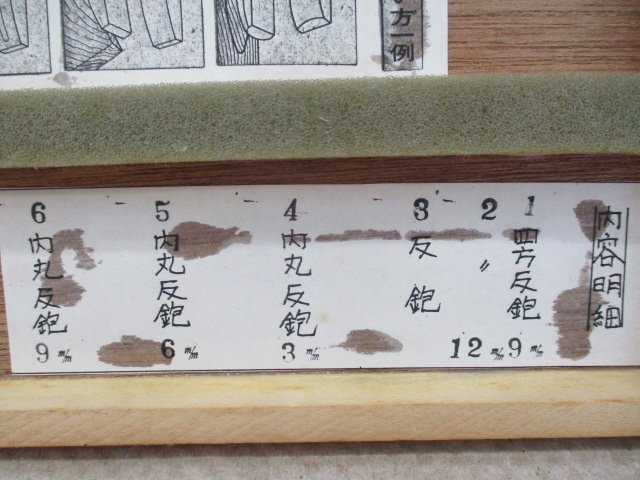 方一例
内容明細
1 四方反鉋 9 m/m
2 〃 12 m/m
3 反鉋
4 内丸反鉋 3 m/m
5 内丸反鉋 6 m/m
6 内丸反鉋 9 m/m